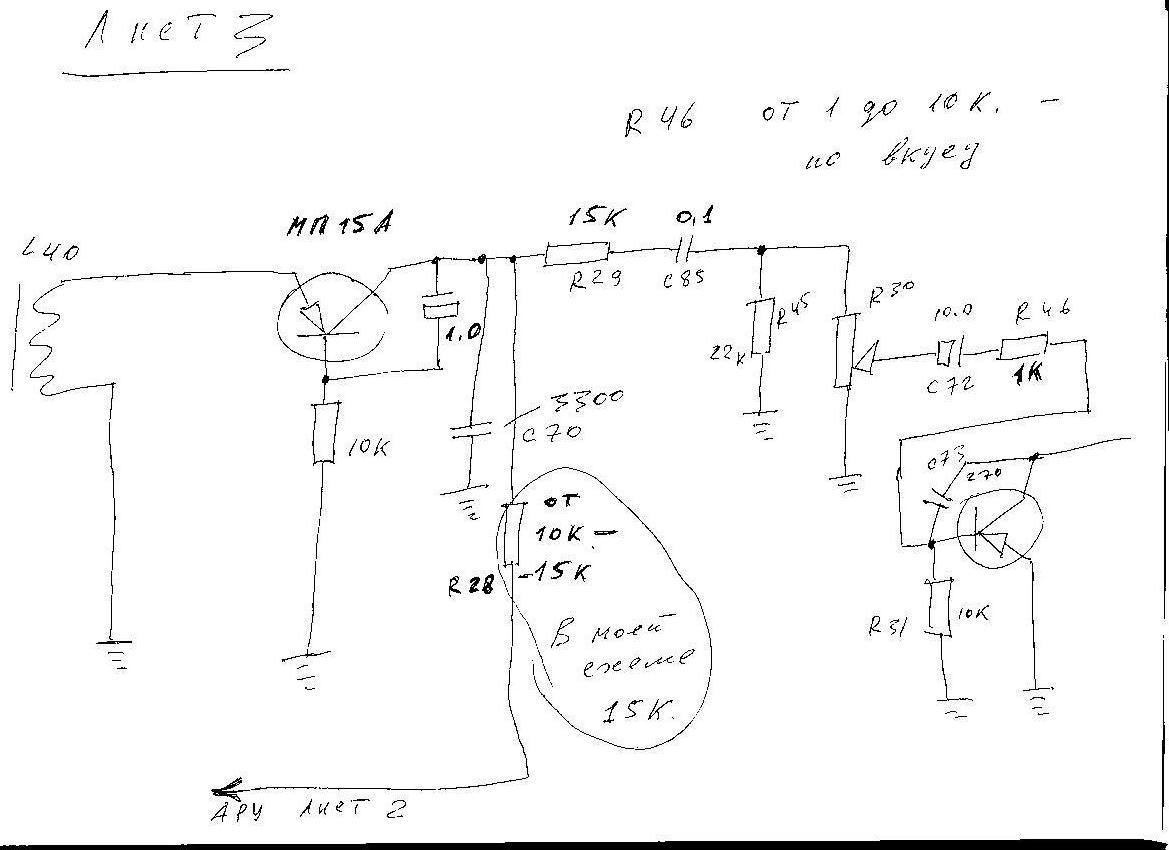 Лист 3
R 46 от 1 до 10 К. –
по вкусу
МП 15 А
L40
15К
0,1
R29
C85
1.0
R45
22к
R30
10.0
R 46
C72
1К
10К
3300
C70
C73
270
от
10К –
–15К
R28
R31
10К
В моей
схеме
15К.
АРУ лист 2